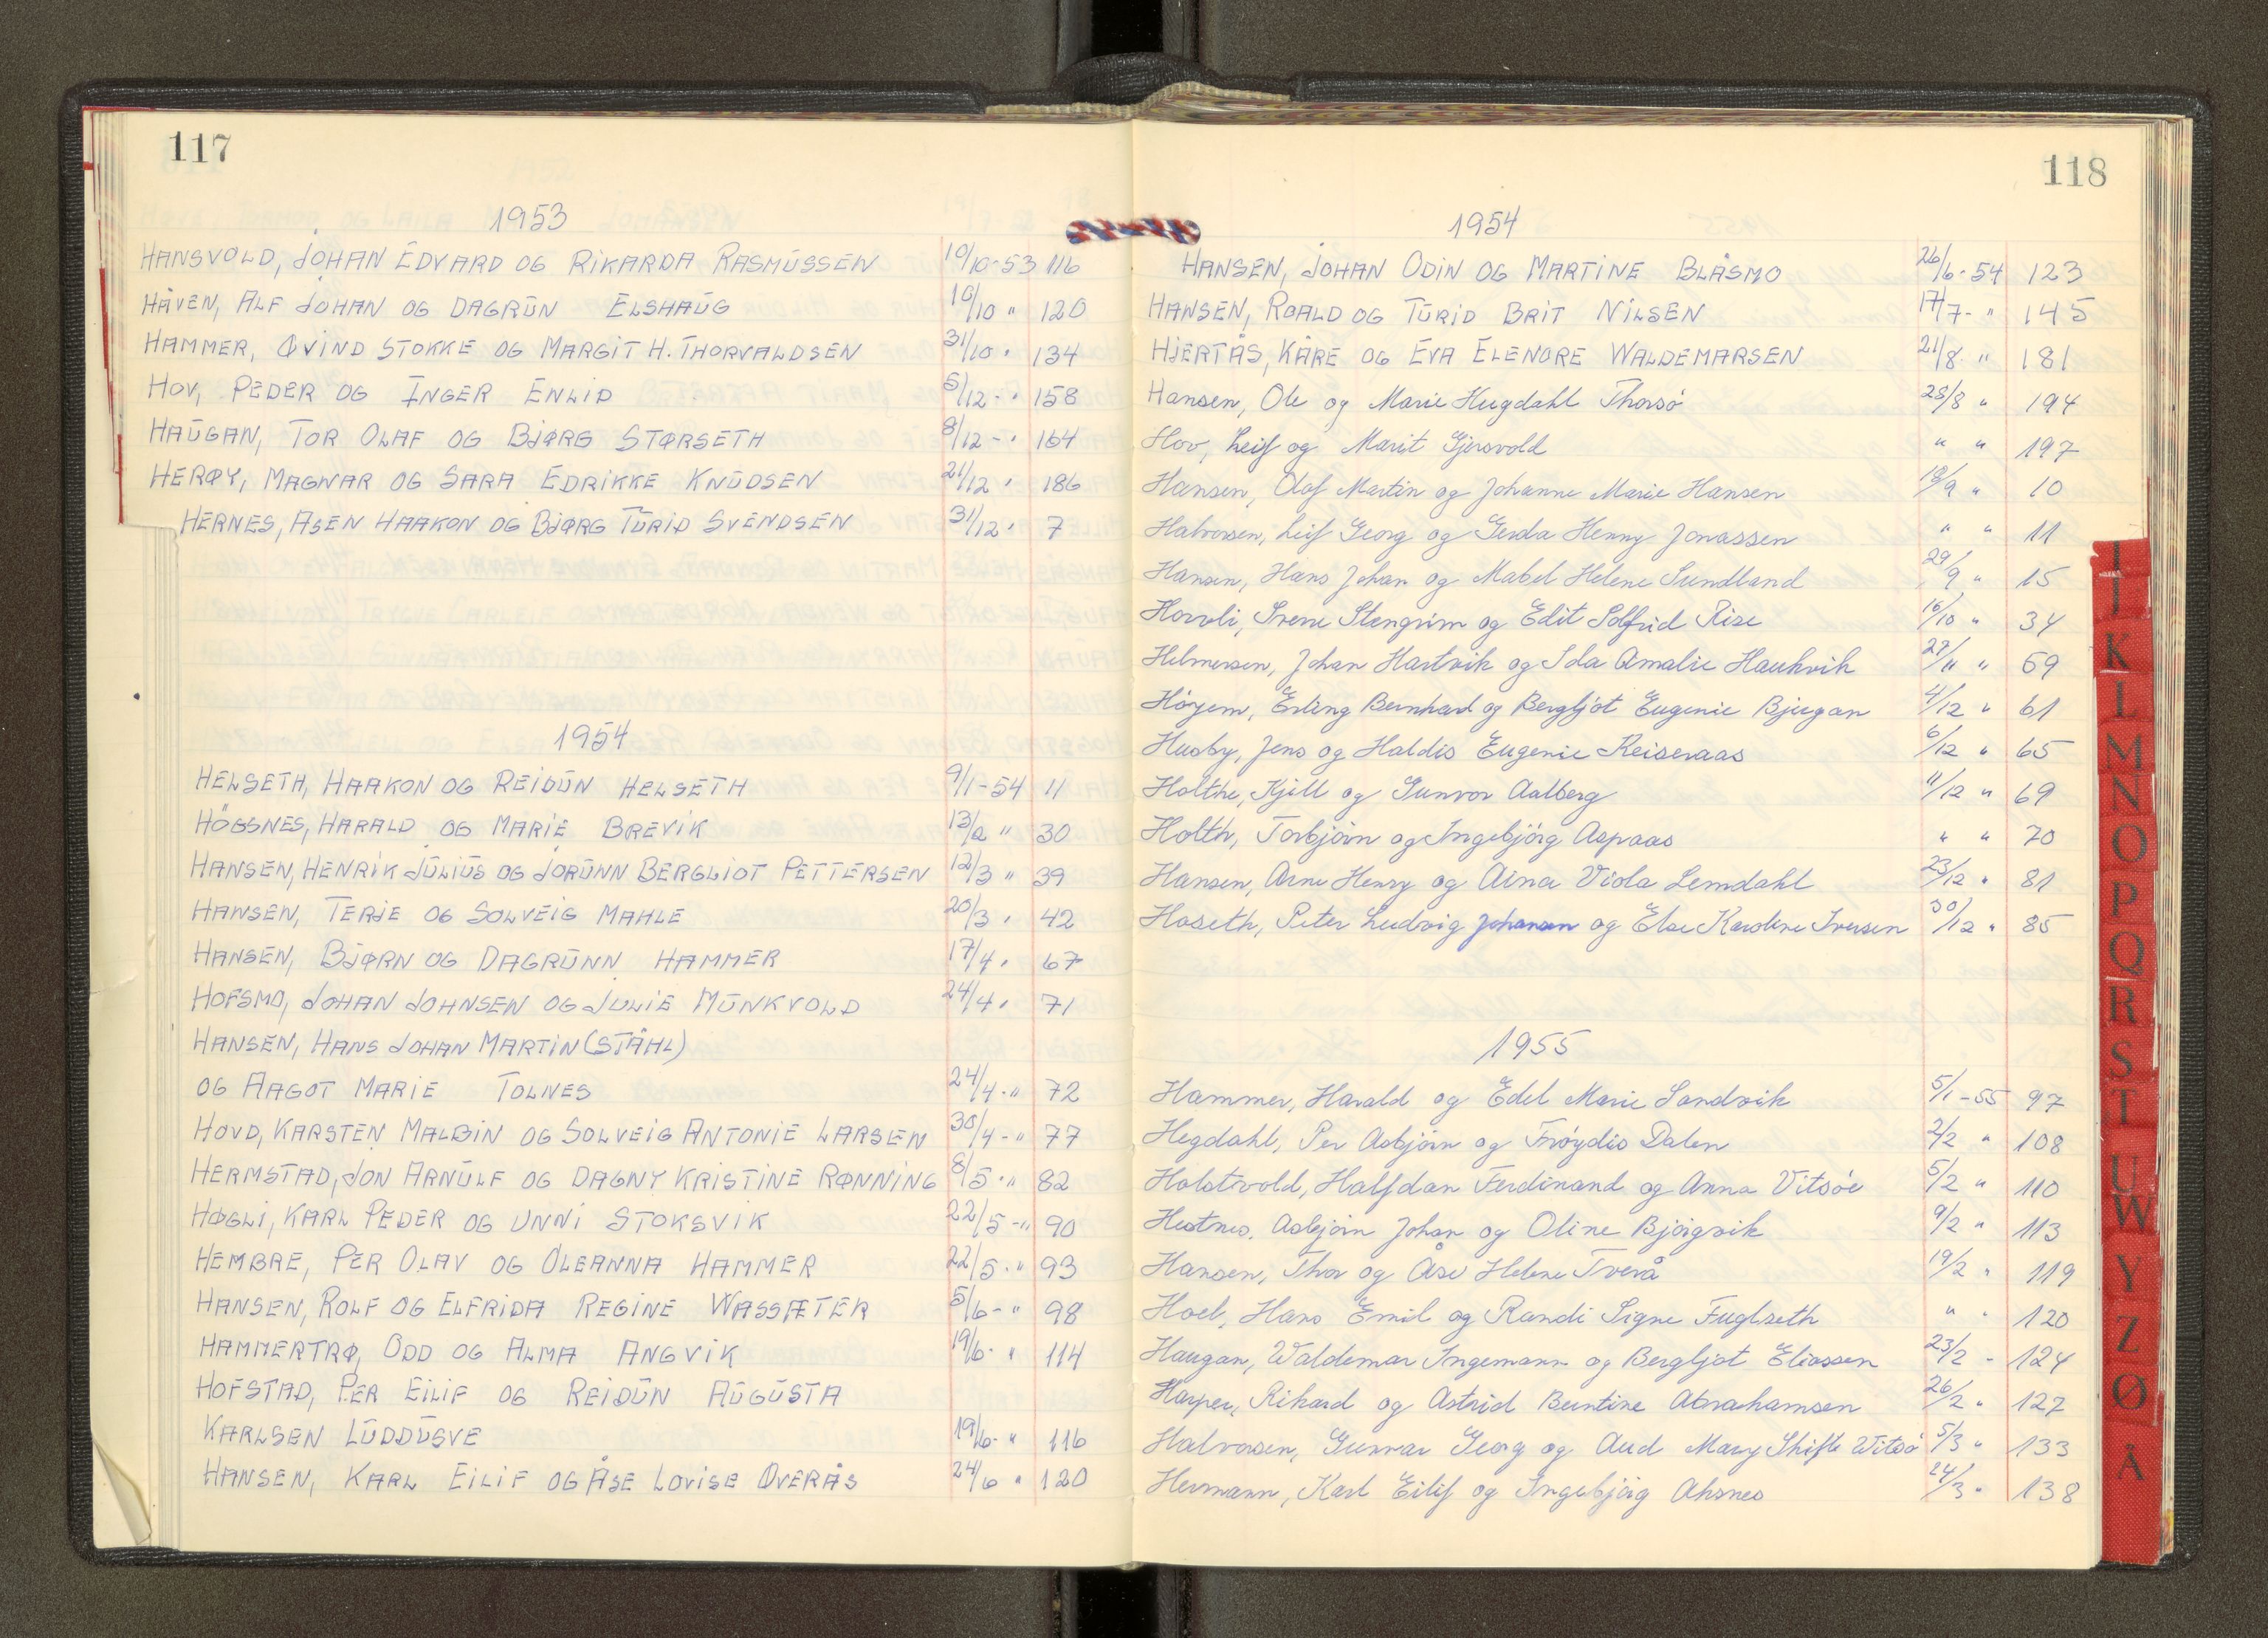 117
1953
HANSVOLD, JOHAN EDVARD OG RIKARDA RASMUSSEN 10/10-53 116
HÅVEN, ALF JOHAN OG DAGRUN ELSHAUG 10/10 " 120
HAMMER, ØVIND STOKKE OG MARGIT H. THORVALDSEN 31/10 " 134
HOV, PEDER OG INGER ENLID 5/12 - " 158
HAUGAN, TOR OLAF OG BJØRG STØRSETH 8/12 - " 164
HERØY, MAGNAR OG SARA EDRIKKE KNUDSEN 21/12 " 186
HERNES, ASEN HAAKON OG BJØRG TURID SVENDSEN 31/12 " 7
1954
HELSETH, HAAKON OG REIDUN HELSETH 9/1-54 11
HÖGSNES, HARALD OG MARIE BREVIK 13/2 " 30
HANSEN, HENRIK JULIUS OG JORUNN BERGLIOT PETTERSEN 12/3 " 39
HANSEN, TERJE OG SOLVEIG MAHLE 20/3 " 42
HANSEN, BJØRN OG DAGRUNN HAMMER 17/4 " 67
HOFSMO, JOHAN JOHNSEN OG JULIE MUNKVOLD 24/4 " 71
HANSEN, HANS JOHAN MARTIN (STÅHL)
OG AAGOT MARIE TOLNES 24/4 - " 72
HOVD, KARSTEN MALBIN OG SOLVEIG ANTONIE LARSEN 30/4 - " 77
HERMSTAD, JON ARNULF OG DAGNY KRISTINE RØNNING 8/5 - " 82
HØGLI, KARL PEDER OG UNNI STOKSVIK 22/5 - " 90
HEMBRE, PER OLAV OG OLEANNA HAMMER 22/5 - " 93
HANSEN, ROLF OG ELFRIDA REGINE WASSÆTER 5/6 - " 98
HAMMERTRØ, ODD OG ALMA ANGVIK 19/6 - " 114
HOFSTAD, PER EILIF OG REIDUN AUGUSTA
KARLSEN LUDDUSVE 19/6 - " 116
HANSEN, KARL EILIF OG ÅSE LOVISE ØVERÅS 24/6 " 120
118
1954
HANSEN, JOHAN ODIN OG MARTINE BLÅSMO 26/6 - 54 123
HANSEN, ROALD OG TURID BRIT NILSEN 17/7 - " 145
HJERTÅS, KÅRE OG EVA ELENORE WALDEMARSEN 21/8 " 181
Hansen, Ole og Marie Hugdahl Thorsø 28/8 " 194
Hov, Leif og Marit Gjersvold " " 197
Hansen, Olaf Martin og Johanne Marie Hansen 18/9 " 10
Halvorsen, Leif Georg og Gerda Henny Jonassen " " 11
Hansen, Hans Johan og Mabel Helene Sundland 29/9 " 15
Horvli, Svene Stengrim og Edit Solfrid Rise 16/10 " 34
Helmersen, Johan Hartvik og Ida Amalie Haukvik 27/11 " 59
Höyem, Erling Bernhard og Bergljot Eugenie Bjergan 4/12 " 61
Husby, Jens og Haldis Eugenie Reiseraas 6/12 " 65
Holthe, Kjell og Gunvor Aalberg 11/12 " 69
Holth, Torbjörn og Ingebjörg Aspaas " " 70
Hansen, Arne Henry og Aina Viola Lemdahl 23/12 " 81
Haseth, Peter Ludvig Johansen og Else Karoline Iversen 30/12 " 85
1955
Hammer, Harald og Edel Marie Sandvik 5/1 - 55 97
Hegdahl, Per Asbjörn og Fröydis Dalen 2/2 " 108
Holstvold, Halfdan Ferdinand og Anna Vitsöe 5/2 " 110
Hestnes, Asbjörn Johan og Oline Björgvik 9/2 " 113
Hansen, Thor og Åse Helene Tverå 19/2 " 119
Hoel, Hans Emil og Randi Signe Fuglseth " " 120
Haugan, Waldemar Ingemann og Bergljot Eliassen 23/2 - 124
Harper, Rikard og Astrid Berntine Abrahamsen 26/2 " 127
Halvorsen, Gunnar Georg og Aud Mary Skifte Vitsö 5/3 " 133
Hermann, Karl Eilif og Ingebjörg Ahsnes 24/3 " 138
I
J
K
L
M
N
O
P
Q
R
S
T
U
W
Y
Z
Ø
Å